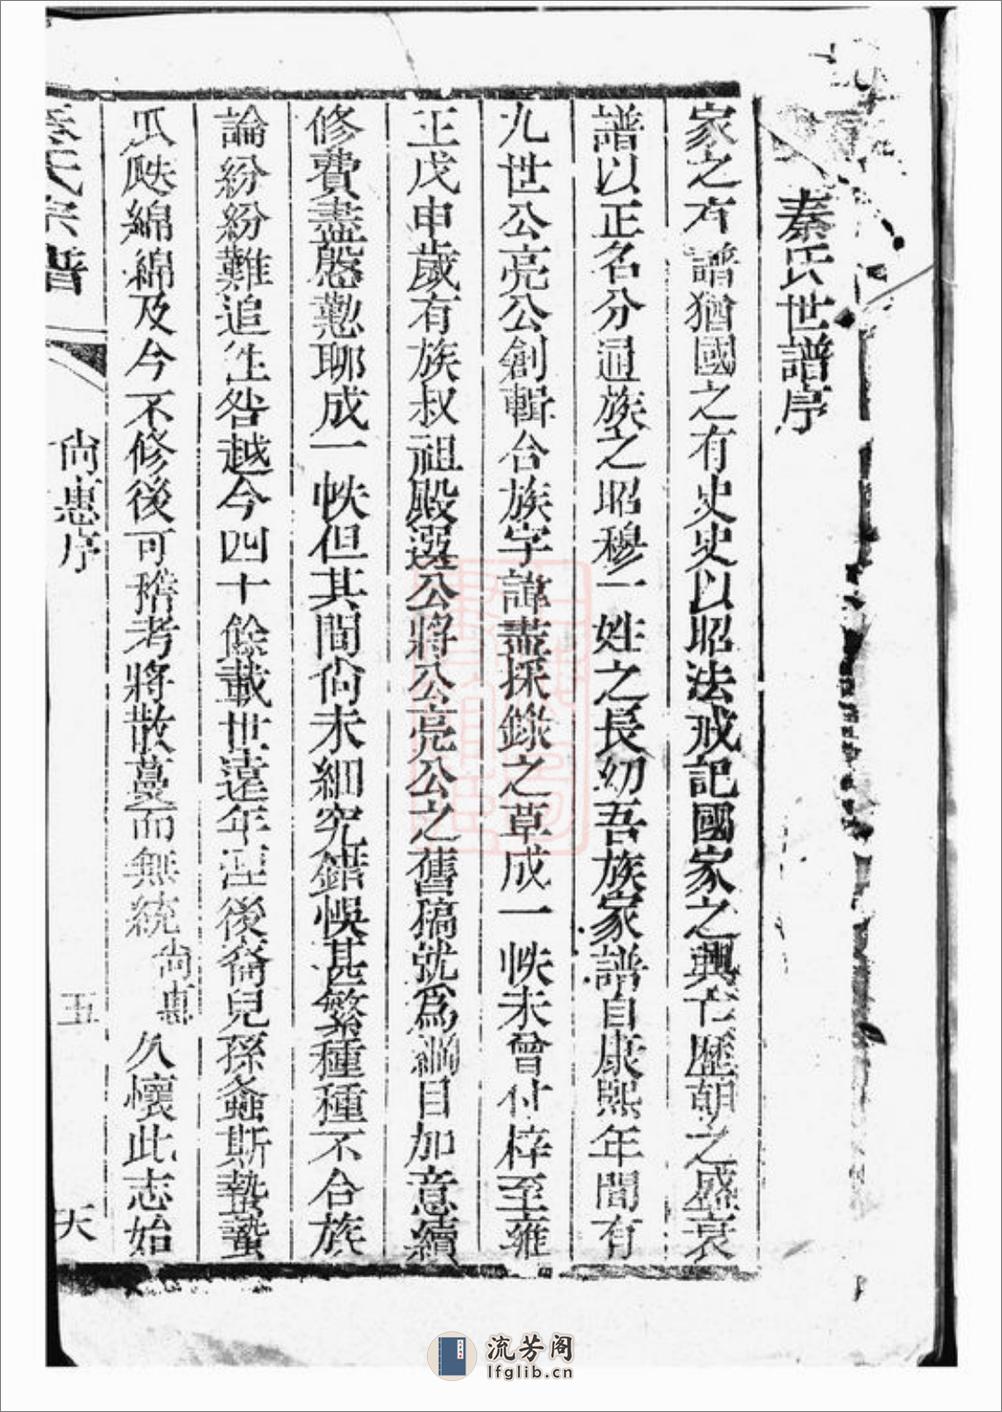 秦氏世譜序
家之有譜猶國之有史史以昭法戒記國家之興亡歷朝之盛衰
譜以正名分通族之昭穆一姓之長幼吾族家譜自康熙年間有
九世公亮公創輯合族字諱盡採錄之草成一帙未曾付梓至雍
正戊申歲有族叔祖殿選公將公亮公之舊稿就為綱目加意續
修費盡慇懃聊成一帙但其間尚未細究錯悞甚繁種種不合族
論紛紛難追往咎越今四十餘載世遠年湮後裔兒孫螽斯蟄蟄
瓜瓞綿綿及今不修後可稽考將散蔓而無統尚惠久懷此志始
秦氏宗譜
尚惠序
五
天
流芳阁
lfglib.cn